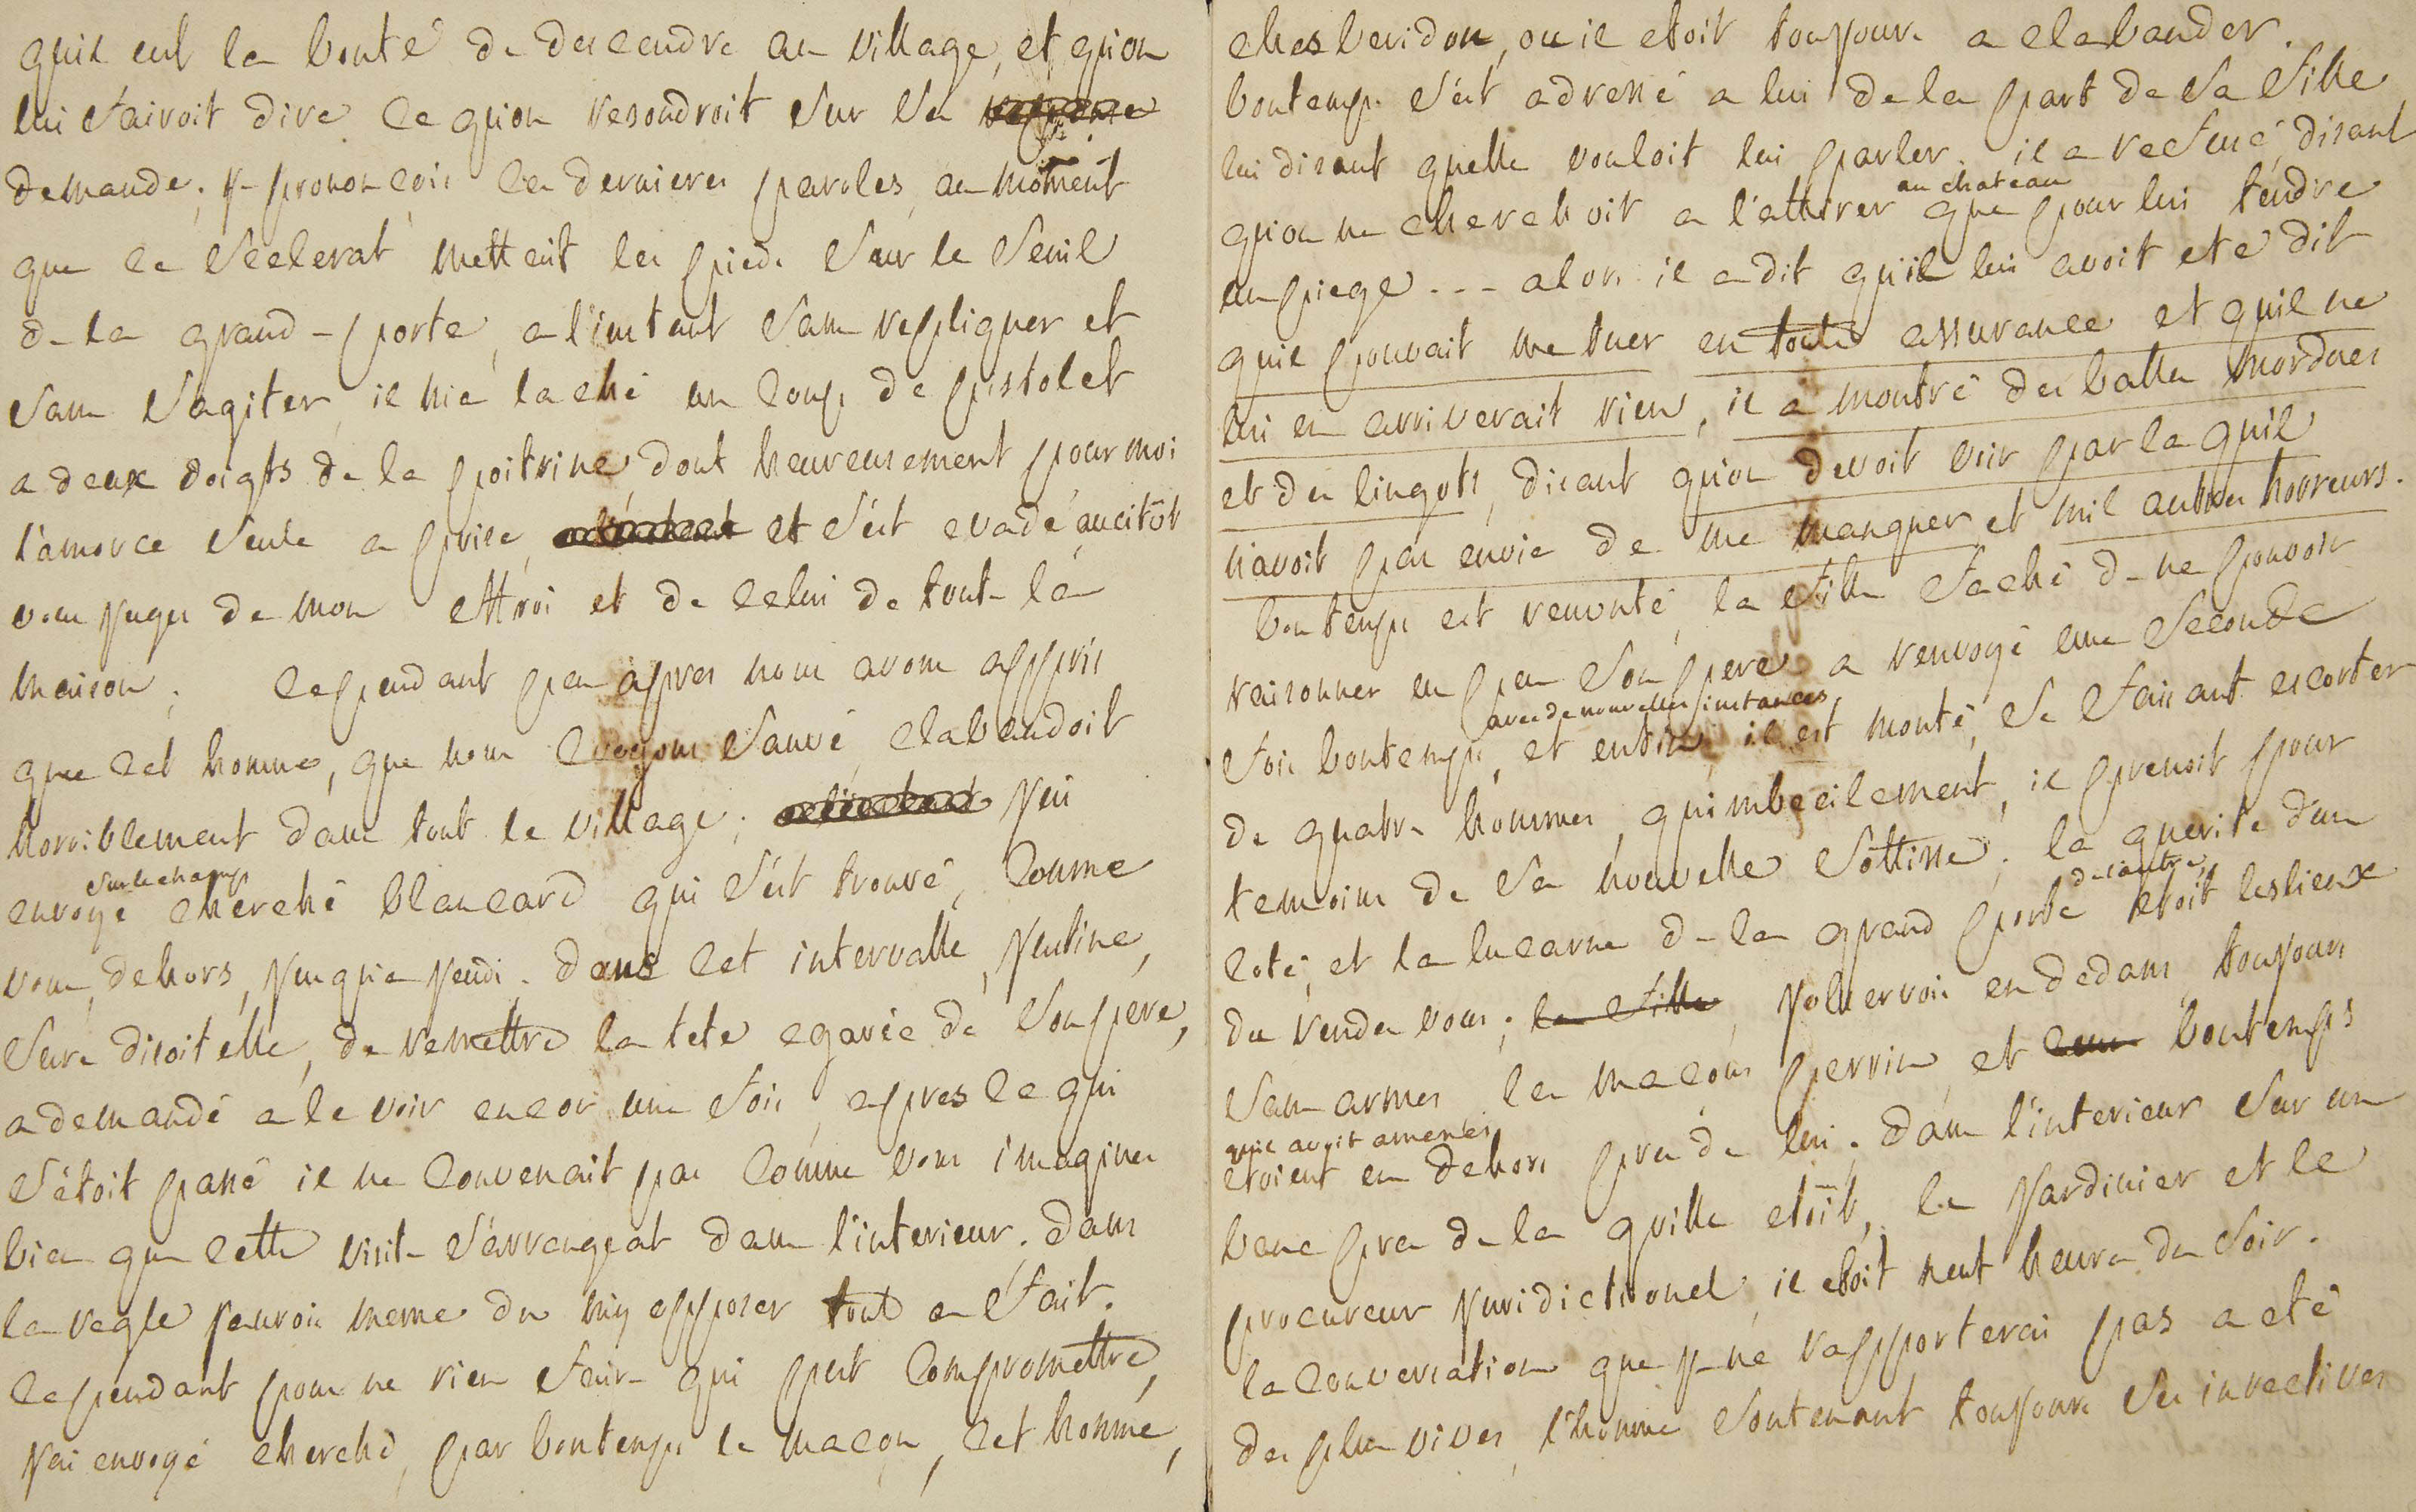 quil eut la bonté de descendre au village, et quon
lui fairoit dire ce quon resoudroit sur sa
demande. je prononcois ces dernieres paroles, au moment
que ce scelerat mettoit les pieds sur le seuil
de la grand-porte, a l'instant sans repliquer et
sans s'agiter, il m'a laché un coup de pistolet
a deux doigts de la poitrine, dont heureusement pour moi
l'amorce seule a prise, et s'est evadé, aucitôt
vous juges de mon effroi et de celui de toute la
maison. cependant peu apres nous avons appris
que cet homme, que nous croyons sauvé, clabaudoit
horriblement dans tout le village; jai
sur le champ
envoyé cherché blancard qui s'est trouvé, comme
vous, dehors, jusqu'a jeudi. dans cet intervalle, justine,
sure disoit elle, de remettre la tete egarée de son pere,
a demandé a le voir encor une fois, apres ce qui
s'étoit passé il ne convenait pas comme vous imagines
bien que cette visite s'arrangeat dans l'interieur. dans
la regle j'aurois meme du my opposer tout a fait.
cependant pour ne rien faire qui put compromettre,
j'ai envoyé cherché, par bontemps le macon, cet homme,
ches beridon, ou il etoit toujours a clabauder.
bontemps s'est adressé a lui de la part de sa fille,
lui disant quelle vouloit lui parler. il a refusé, disant
au chateau
quon ne cherchoit a l'attirer que pour lui tendre
un piege --- alors il a dit qu'il lui avoit eté dit
quil pouvait me tuer en toute assurance et quil ne
lui en arriverait rien, il a montré des balles mordues
et des lingots, disant qu'on devoit voir par la quil
n'avoit pas envie de me manquer et mil autres horreurs.
bontemps est remonté, la fille faché de ne pouvoir
raisonner un peu son pere a renvoyé une seconde
avec de nouvelles instances,
fois bontemps, et enfin il est monté, se faisant escorter
de quatre hommes, qu'imbecilement, il prenoit pour
temoins de sa nouvelle sottisse. la guerite d'un
de l'autre,
coté, et la lucarne de la grand porte etoit les lieux
du rendes vous; la fille, j'observois en dedans toujours
sans armes les macons perrin et bontemps
quil avoit amenés
etoient en dehors pres de lui. dans l'interieur sur un
banc pres de la grille etoit, le jardinier et le
procureur juridictionel, il etoit neuf heures du soir.
la conversation que je ne rapporterai pas a eté
des plus vives, l'homme soutenant toujours ses invectives